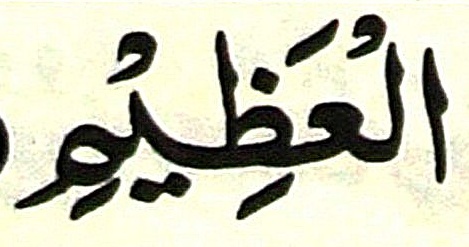 الْعَظِيْمِ